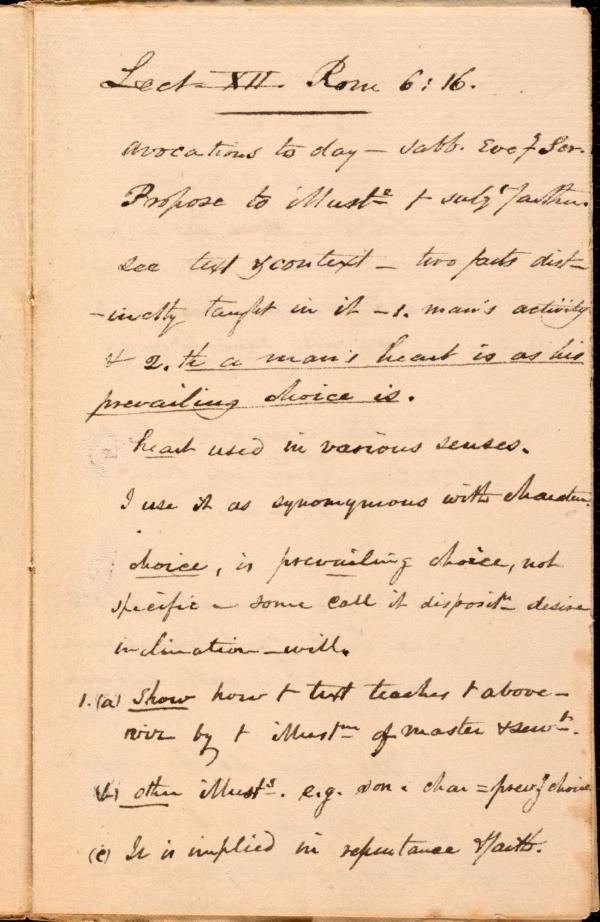 Lect XII. Rom 6:16.
avocations to day – Sabb. Eve
Propose to illuste + subj farther.
see text & context – two facts dist–
–inctly taught in it – 1. man's activity
& 2. tht a man's heart is as his
prevailing choice is.
heart used in various senses.
I use it as synonymous with character.
choice, is prevailing choice, not
specific – some call it dispositn desire
inclination – will.
1. (a) Show how + text teaches + above –
viz by + illustrn of master & servt.
(b) other illusts. e.g. char = prevg choice
(c) It is implied in repentance & faith.